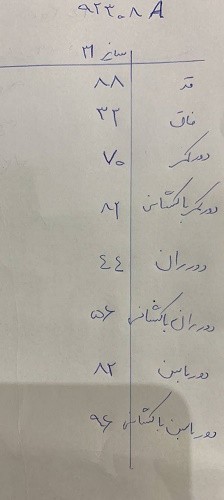 ۹۲۳۰۸ A
سایز ۳۱
قد ۸۸
فاق ۳۲
دورکمر ۷۰
دورکمر باکشسانی ۸۲
دورران ۴۴
دورران باکشسانی ۵۶
دورباسن ۸۲
دورباسن باکشسانی ۹۶